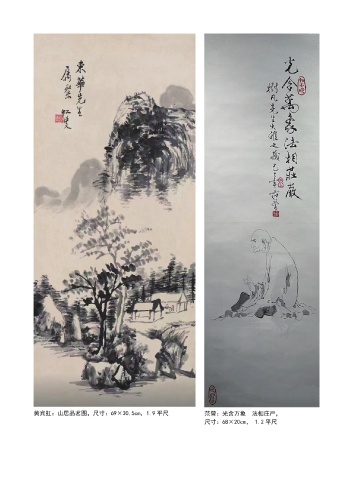 東華先生
屬粲 虹叟
光含萬象法相莊嚴
樹凡先生大雅之屬己
黄宾虹：山居品茗图，尺寸：69×30.5cm，1.9平尺
范曾：光含万象 法相庄严，
尺寸：68×20cm， 1.2平尺